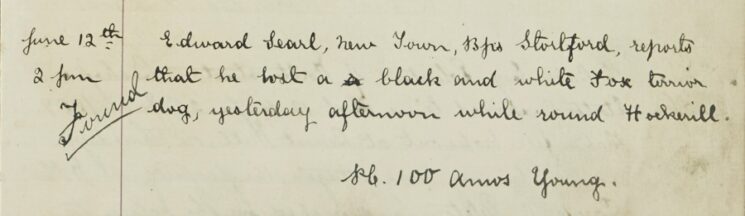 June 12th Edward Searl, New Town, Bps Stortford, reports
2 pm that he lost a black and white Fox terrior
Found dog, yesterday afternoon while round Hockerill.
P.C. 100 Amos Young.